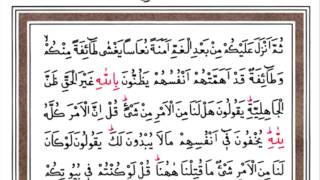 ثُمَّ اَنْزَلَ عَلَيْكُمْ مِنْ بَعْدِ الْغَمِّ اَمَنَةً نُعَاسًا يَغْشٰى طَٓائِفَةً مِنْكُمْ
وَطَٓائِفَةٌ قَدْ اَهَمَّتْهُمْ اَنْفُسُهُمْ يَظُنُّونَ بِاللّٰهِ غَيْرَ الْحَقِّ ظَنَّ
الْجَاهِلِيَّةِ يَقُولُونَ هَلْ لَنَا مِنَ الْاَمْرِ مِنْ شَيْءٍ قُلْ اِنَّ الْاَمْرَ كُلَّهُ
لِلّٰهِ يُخْفُونَ فٓى اَنْفُسِهِمْ مَا لَا يُبْدُونَ لَكَ يَقُولُونَ لَوْ كَانَ
لَنَا مِنَ الْاَمْرِ شَيْءٌ مَا قُتِلْنَا هٰهُنَا قُلْ لَوْ كُنْتُمْ فٖى بُيُوتِكُمْ